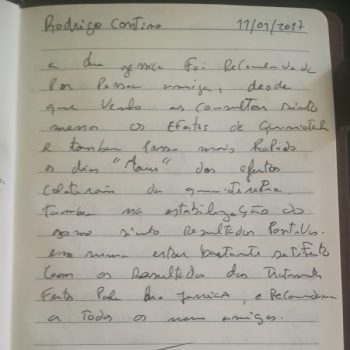 Rodrigo Contino 11/01/2017
a Dra gessica Foi Recomendada
Por Pessoa amiga, desde
que venho as consultas sinto
menos os Efeitos de Quimioterapia
e tambem Passa mais Rapido
os dias "Maus" dos efeitos
colaterais da quimioterapia.
tambem na estabilização do
sono sinto resultados Positivos.
em suma estou bastante satisfeito
com os Resultados dos Tratamentos
Feito Pela Dra Jessica, e Recomendo
a Todos os meus amigos.